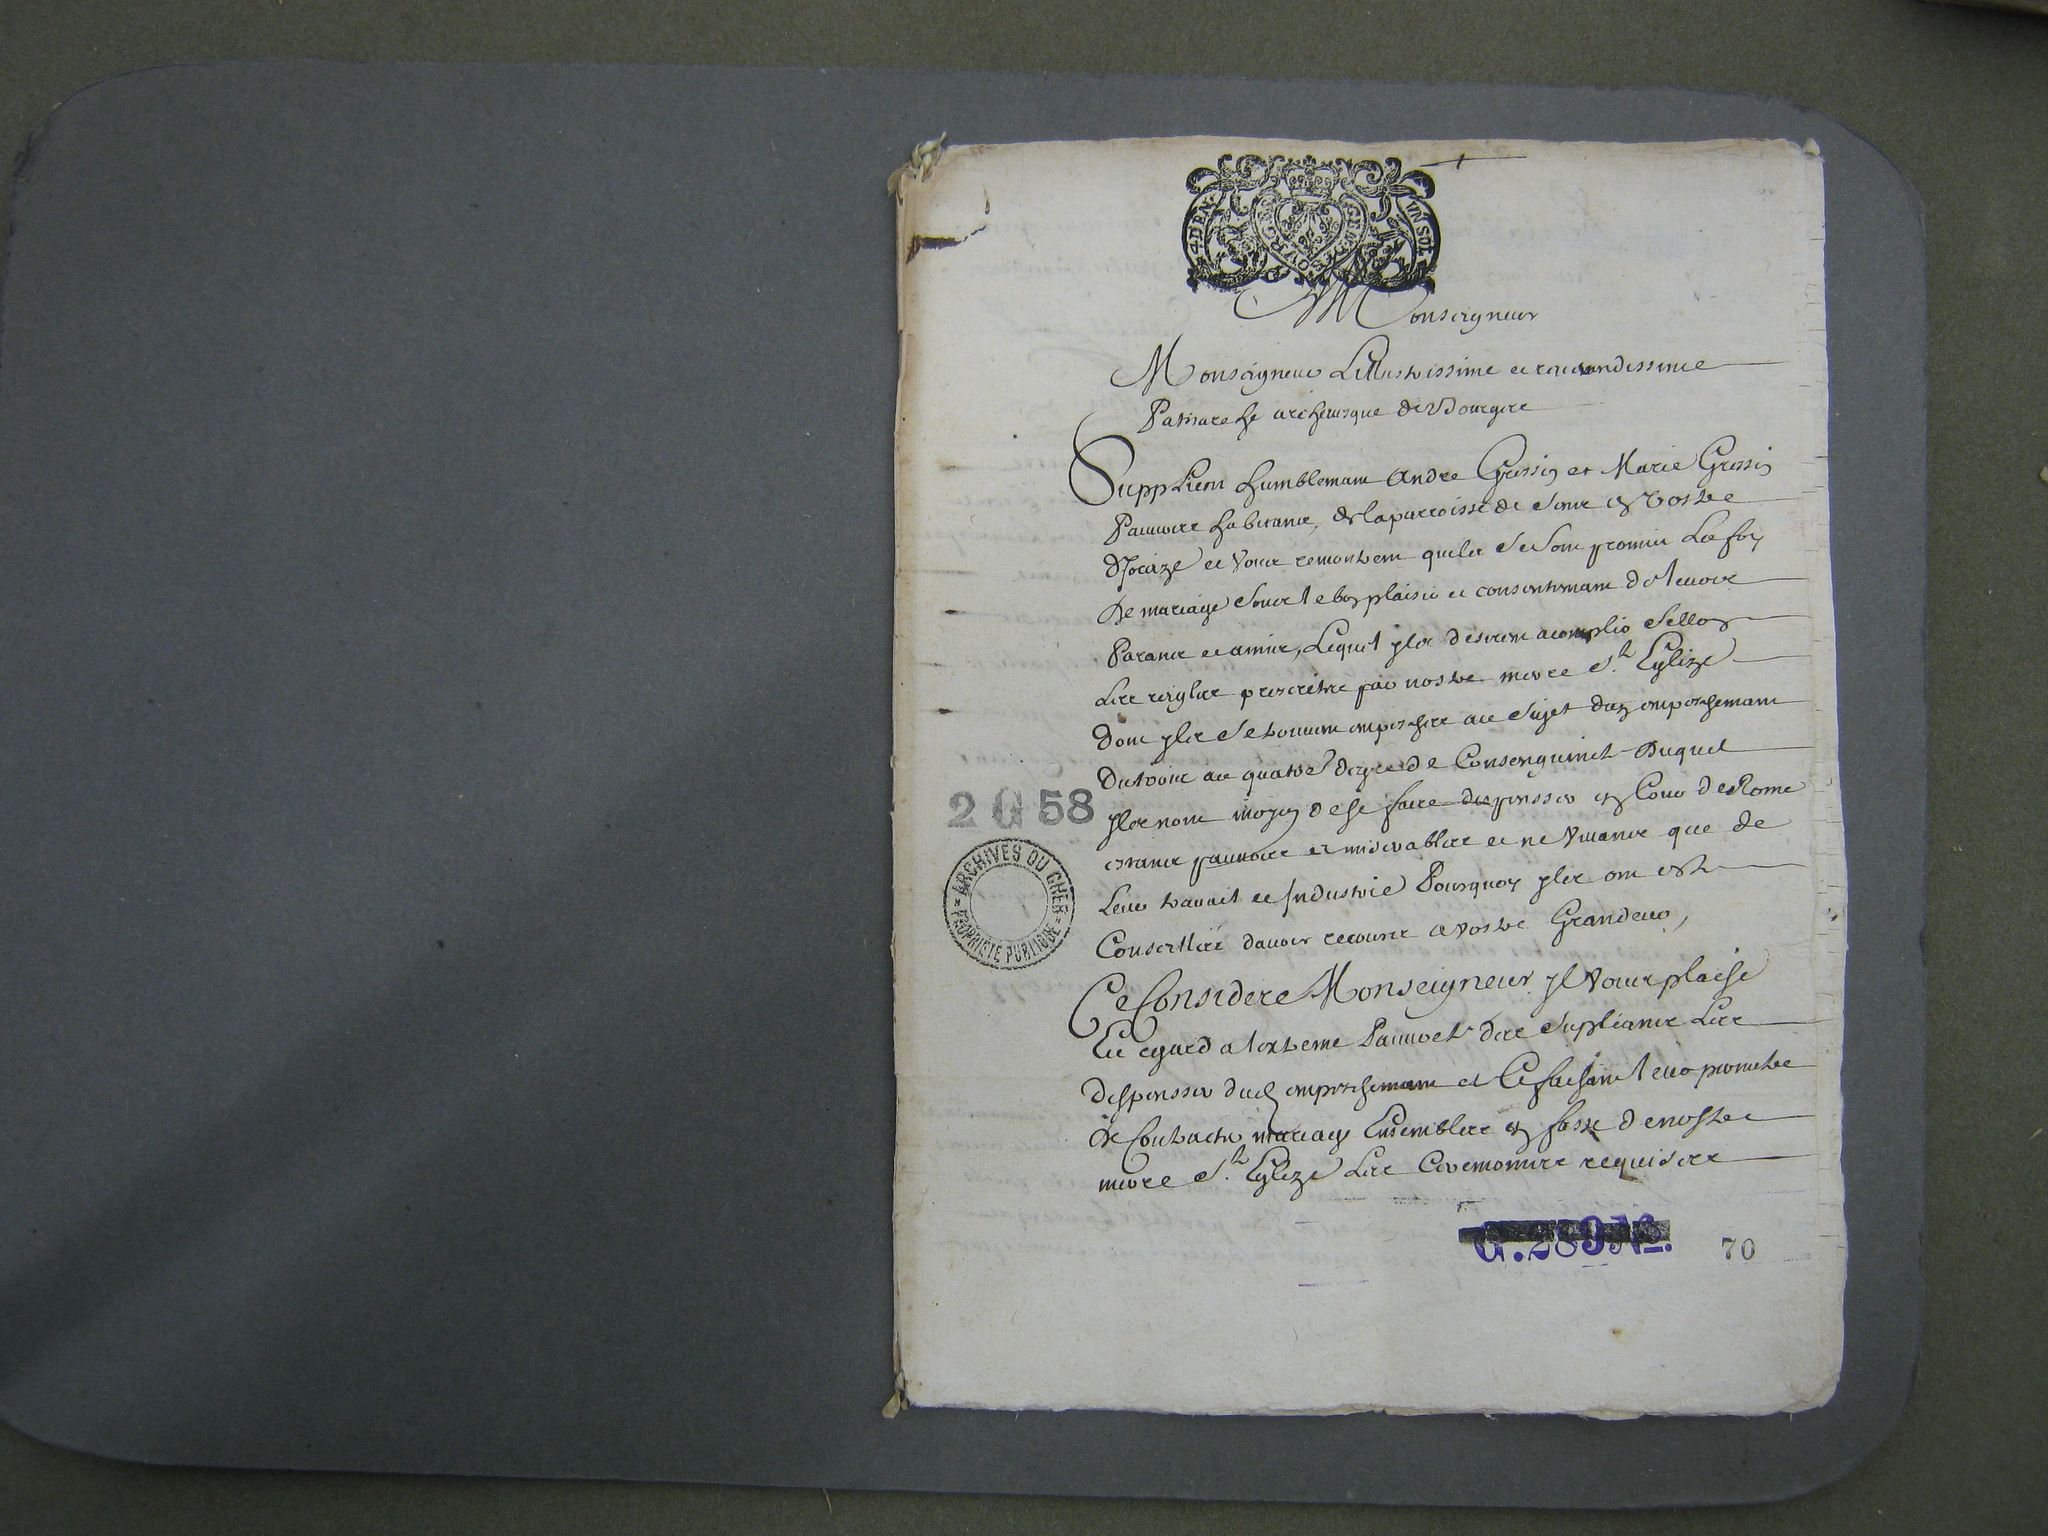 4 DEN.
UN SOL
BOURGES
Monseigneur
Monseigneur Lillustrissime et reverendissime
Patriarche archevesque de Bourges
Supplient humblemant Andre Grossin et Marie Grossin
Pauvres habitans, de la parroisse de en vostre
diocize et vous remontrent quiles se sont promis La foy
de mariage sous le bon plaisir et consentemant de leurs
Parans et amis, Lequel yles desirent acomplir sellon
Les reigles prescrites par nostre mere Ste Eglize
dont yles se trouvent empesches au sujet dun empeschemant
du trois au quatre degre de Consenguinité Duquel
yles nont moyen de se faire dispensser en Cour de Rome
estans pauvres et miserables et ne vivans que de
Leur travail et Industrie Pourquoy yles ont esté
Conseilles davoir recours a vostre Grandeur,
Ce Considere Monseigneur yl vous plaise
Eu egard a lextreme Pauvreté des supplians Les
dispensser dud empeschemant et Ce faisant leur promettre
de Contracter mariage Ensembles en fasse de nostre
mere Ste Eglize Les Ceremonies requises
2 G 58
ARCHIVES DU CHER
PROPRIÉTÉ PUBLIQUE
G. 289 No.
70